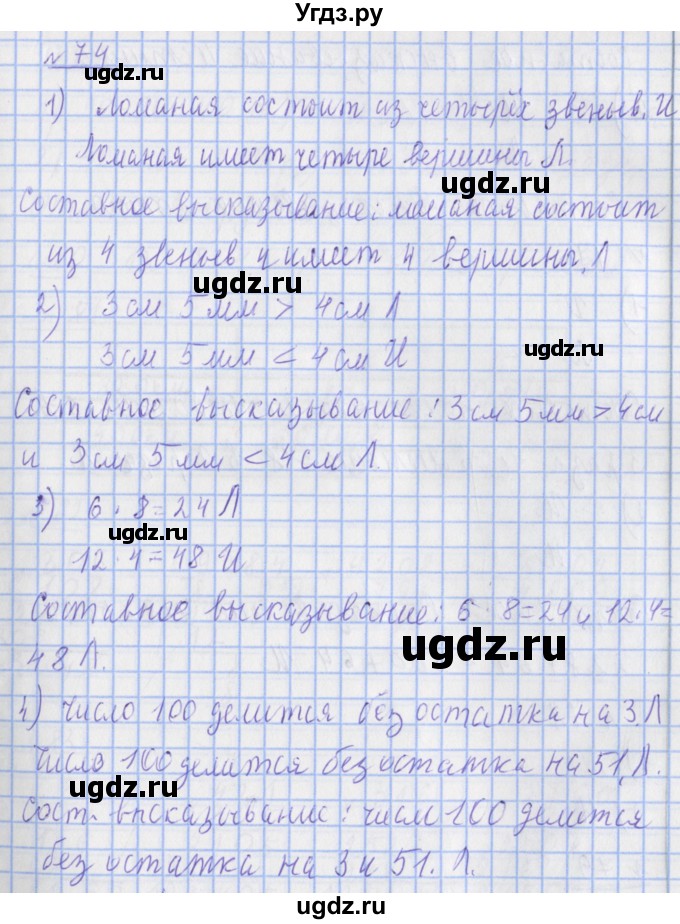 Угдз.ру
№ 74
1) Ломаная состоит из четырёх звеньев. И
Ломаная имеет четыре вершины Л.
Составное высказывание: ломаная состоит
из 4 звеньев и имеет 4 вершины. Л
2) 3 см 5 мм > 4 см Л
3 см 5 мм < 4 см И
Составное высказывание: 3 см 5 мм > 4 см
и 3 см 5 мм < 4 см Л.
3) 6 · 8 = 24 Л
12 · 4 = 48 И
Составное высказывание: 6 · 8 = 24 и 12 · 4 =
48 Л.
4) Число 100 делится без остатка на 3. Л
Число 100 делится без остатка на 51. Л.
Сост. высказывание: число 100 делится
без остатка на 3 и 51. Л.
ugdz.ru
ugdz.ru
ugdz.ru
ugdz.ru
ugdz.ru
ugdz.ru
ugdz.ru
ugdz.ru
ugdz.ru
ugdz.ru
ugdz.ru